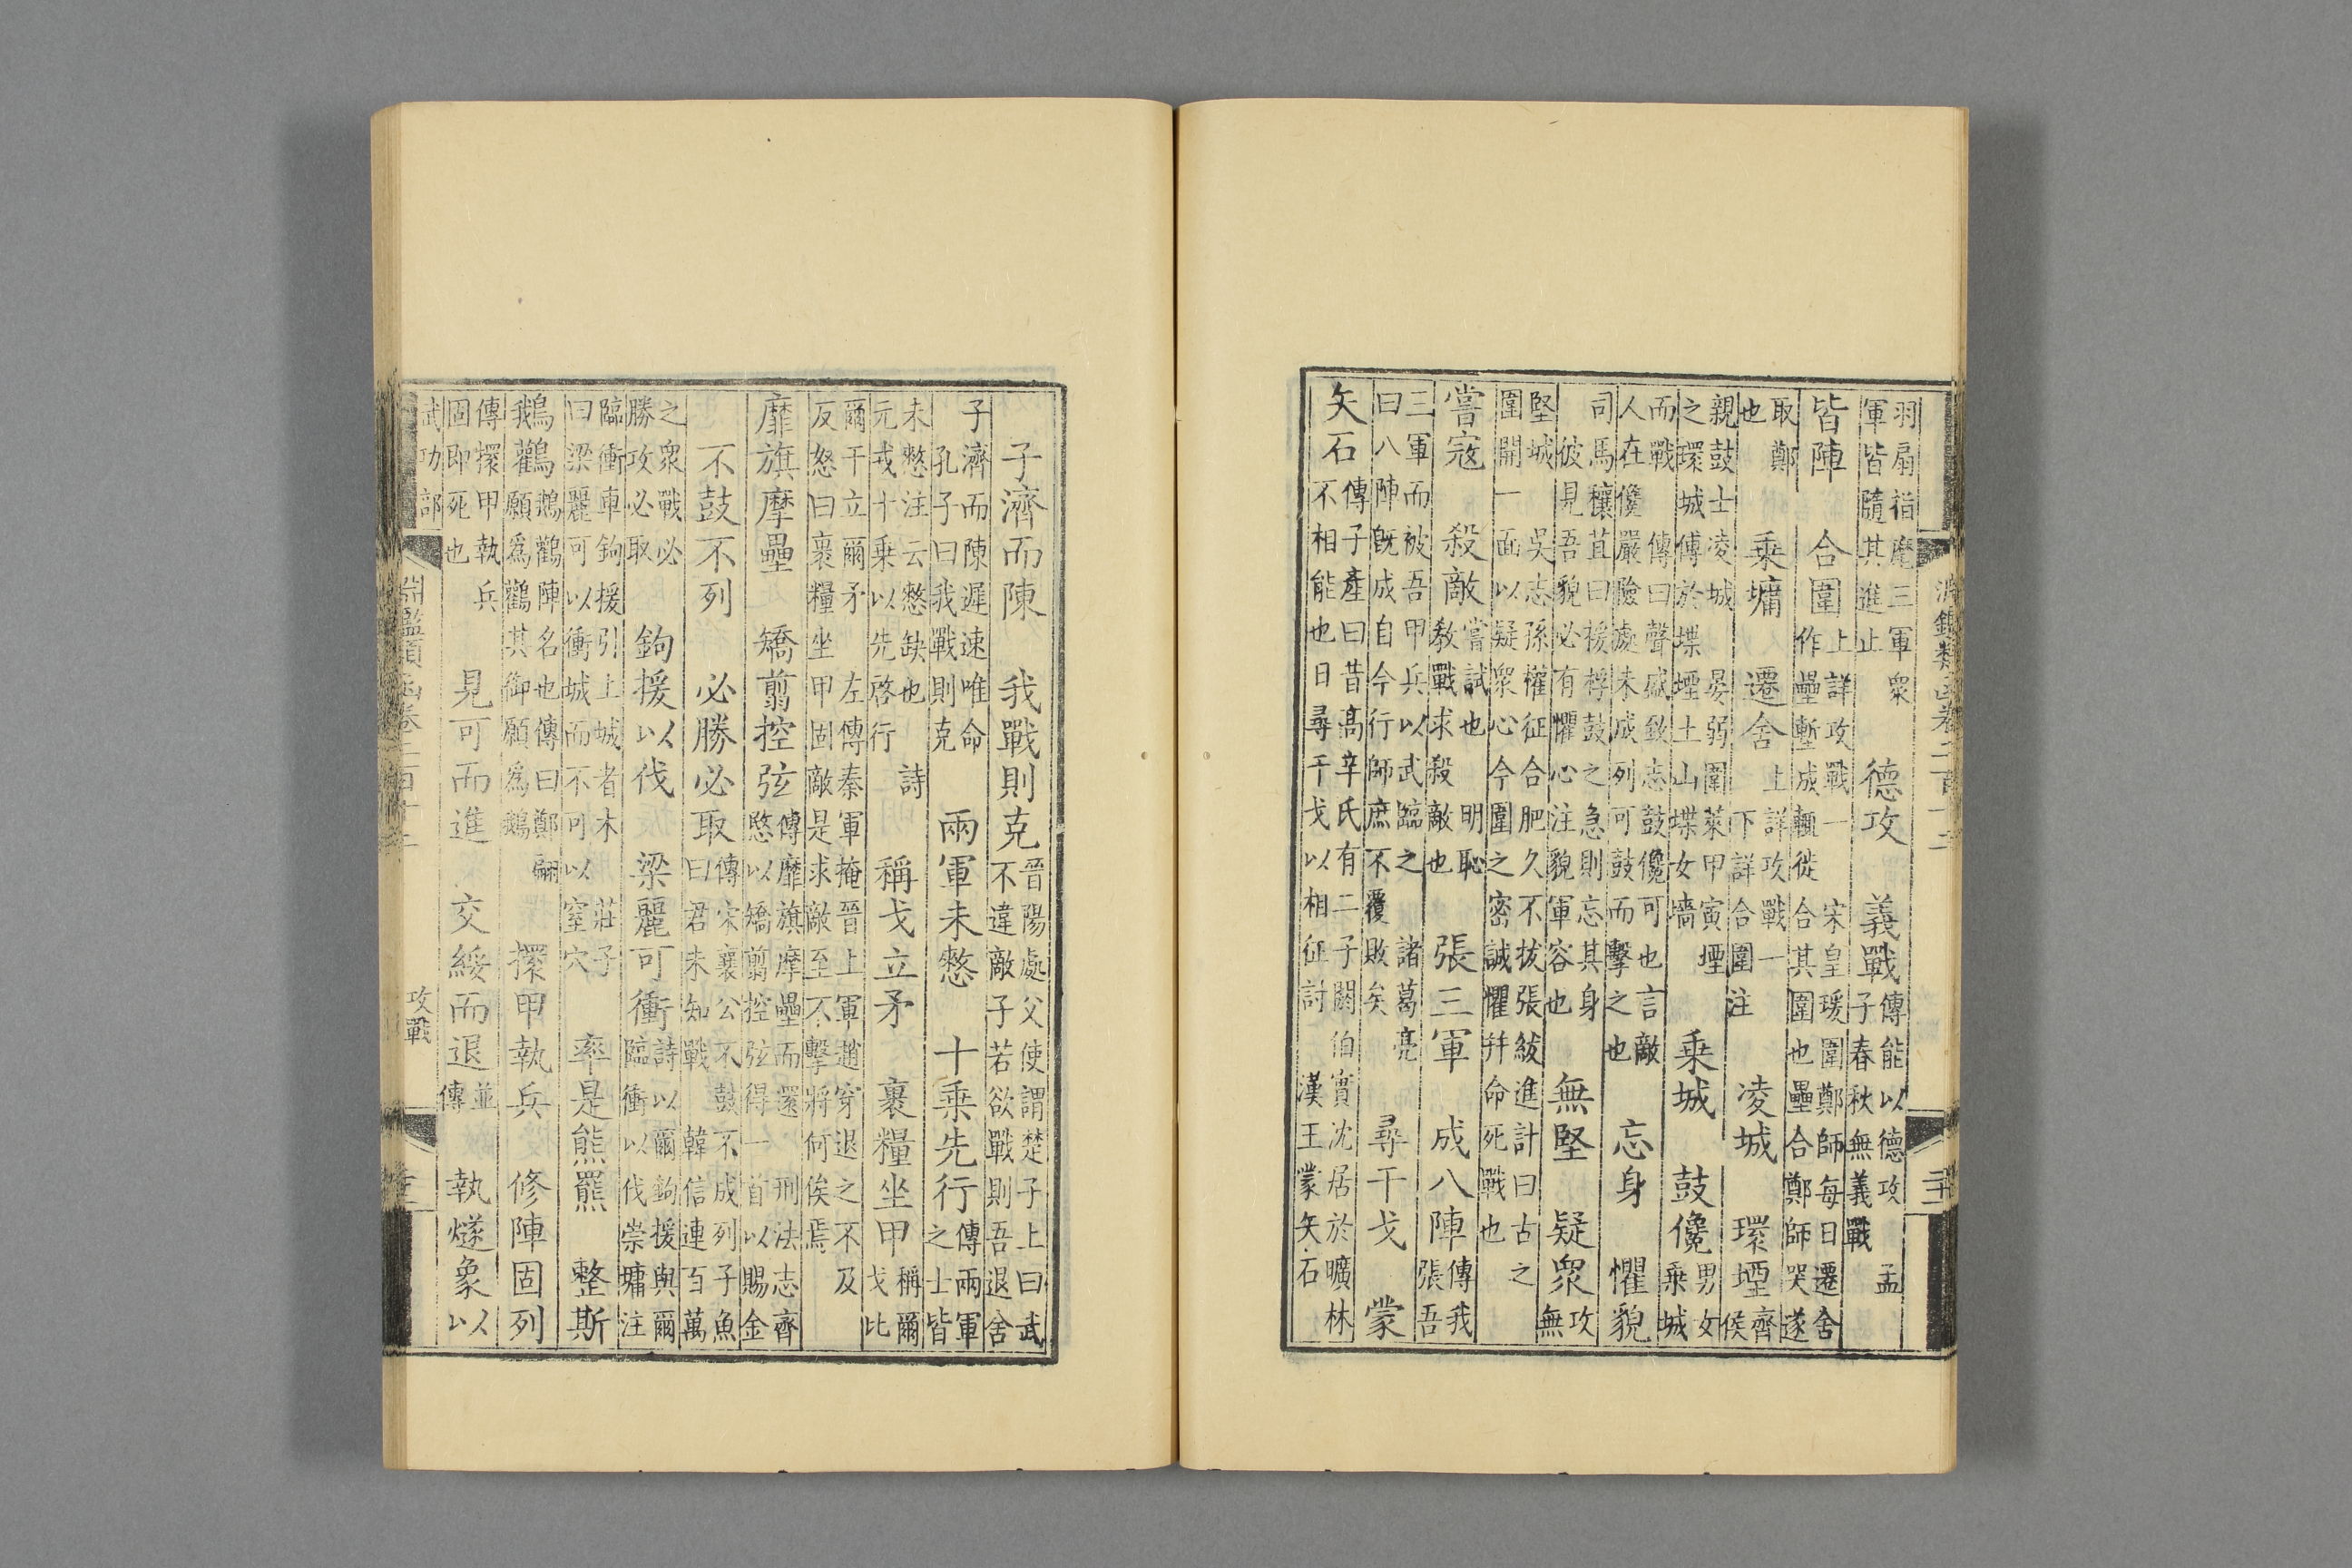 淵鑑類函卷二百十二
羽扇指麾三軍衆
軍皆隨其進止
德攻　義戰
傳能以德攻　孟
子春秋無義戰
皆陣　合圍
上詳攻戰一
作壘塹成輒徙
宋皇瑗圍鄭師每日遷舍
合其圍也壘合鄭師哭遂
取鄭
也
乘墉　遷舍
上詳攻戰一
下詳合圍注
凌城　環堙
齊
侯
親鼓士凌城
之環城傅於堞
晏弱圍萊甲寅堙
堙土山堞女墻
乘城　鼓儳
男女
乘城
而戰　傳曰聲盛致志鼓儳可也言敵
人在儳嚴險處未成列可鼓而擊之也
忘身　懼貌
司馬穰苴曰援桴鼓之急則忘其身
彼見吾貌必有懼心注貌軍容也
無堅　疑衆
攻
無
堅城　吳志孫權征合肥久不拔張紘進計曰古之
圍開一面以疑衆心今圍之密誠懼并命死戰也
嘗寇　殺敵
嘗試也　明恥
教戰求殺敵也
張三軍　成八陣
傳我
張吾
三軍而被吾甲兵以武臨之　諸葛亮
曰八陣既成自今行師庶不覆敗矣
尋干戈　蒙
矢石
傳子產曰昔高辛氏有二子閼伯實沈居於曠林
不相能也日尋干戈以相征討　漢王蒙矢石
子濟而陳　我戰則克
晉陽處父使謂楚子上曰武
不違敵子若欲戰則吾退舍
子濟而陳遲速唯命
孔子曰我戰則克
兩軍未憗　十乘先行
傳兩軍
之士皆
未憗注云憗缺也　詩
元戎十乘以先啓行
稱戈立矛　裹糧坐甲
稱爾
戈比
爾干立爾矛　左傳秦軍掩晉上軍趙穿退之不及
反怒曰裹糧坐甲固敵是求敵至不擊將何俟焉
靡旗摩壘　矯翦控弦
傳靡旗摩壘而還　刑法志齊
愍以矯翦控弦得一首以賜金
不鼓不列　必勝必取
傳宋襄公不鼓不成列子魚
曰君未知戰　韓信連百萬
之衆戰必
勝攻必取
鉤援以伐　梁麗可衝
詩以爾鉤援與爾
臨衝以伐崇墉注
臨衝車鉤援引上城者木　莊子
曰梁麗可以衝城而不可以窒穴
率是熊羆　整斯
鵝鸛
鵝鸛陣名也傳曰鄭翩
願為鸛其御願為鵝
擐甲執兵　修陣固列
傳擐甲執兵
固即死也
見可而進　交綏而退
並
傳
執燧象以
武功部
淵鑑類函卷二百十二　攻戰